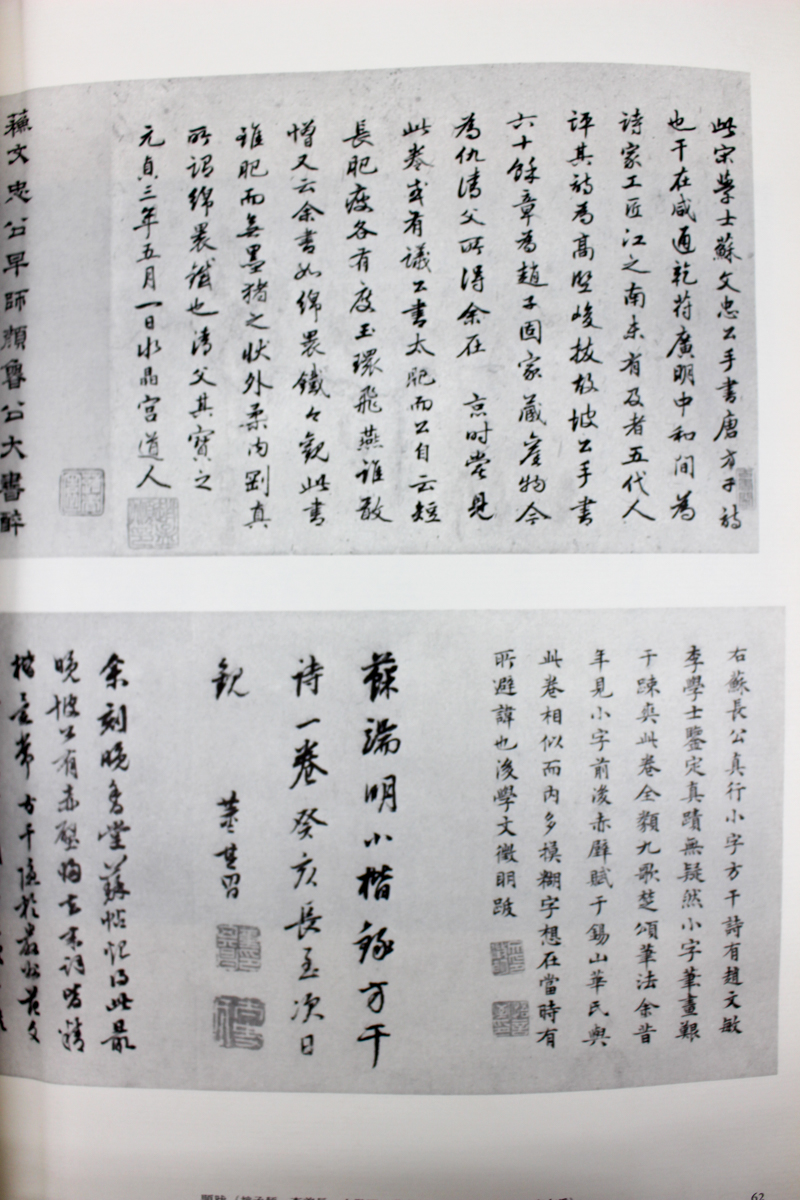 此宋學士蘇文忠公手書唐方干詩
也干在咸通乾符廣明中和間為
诗家工匠江之南未有及者五代人
評其詩為高堅峻拔故坡公手書
六十餘章為趙子固家藏舊物今
為仇清父所得余在 京时嘗見
此卷或有議公書太肥而公自云短
長肥瘦各有度玉環飛燕誰敢
憎又云余書如綿裹鐵々觀此書
雖肥而無墨猪之状外柔内剛真
所謂绵裹鐵也清父其寶之
元貞三年五月一日水晶宮道人
蘇文忠公早師顏魯公大書醉
右蘇長公真行小字方干詩有趙文敏
李學士鑒定真蹟無疑然小字筆畫艱
于疎爽此卷全類九歌楚頌筆法余昔
年見小字前後赤壁賦于錫山華氏與
此卷相似而内多模糊字想在當時有
所避諱也後學文徵明跋
蘇端明小楷録方干
诗一卷癸亥長至次日
觀
董其昌
余刻晚香堂蘇帖記得此最
晚坡公有赤壁
方干
62